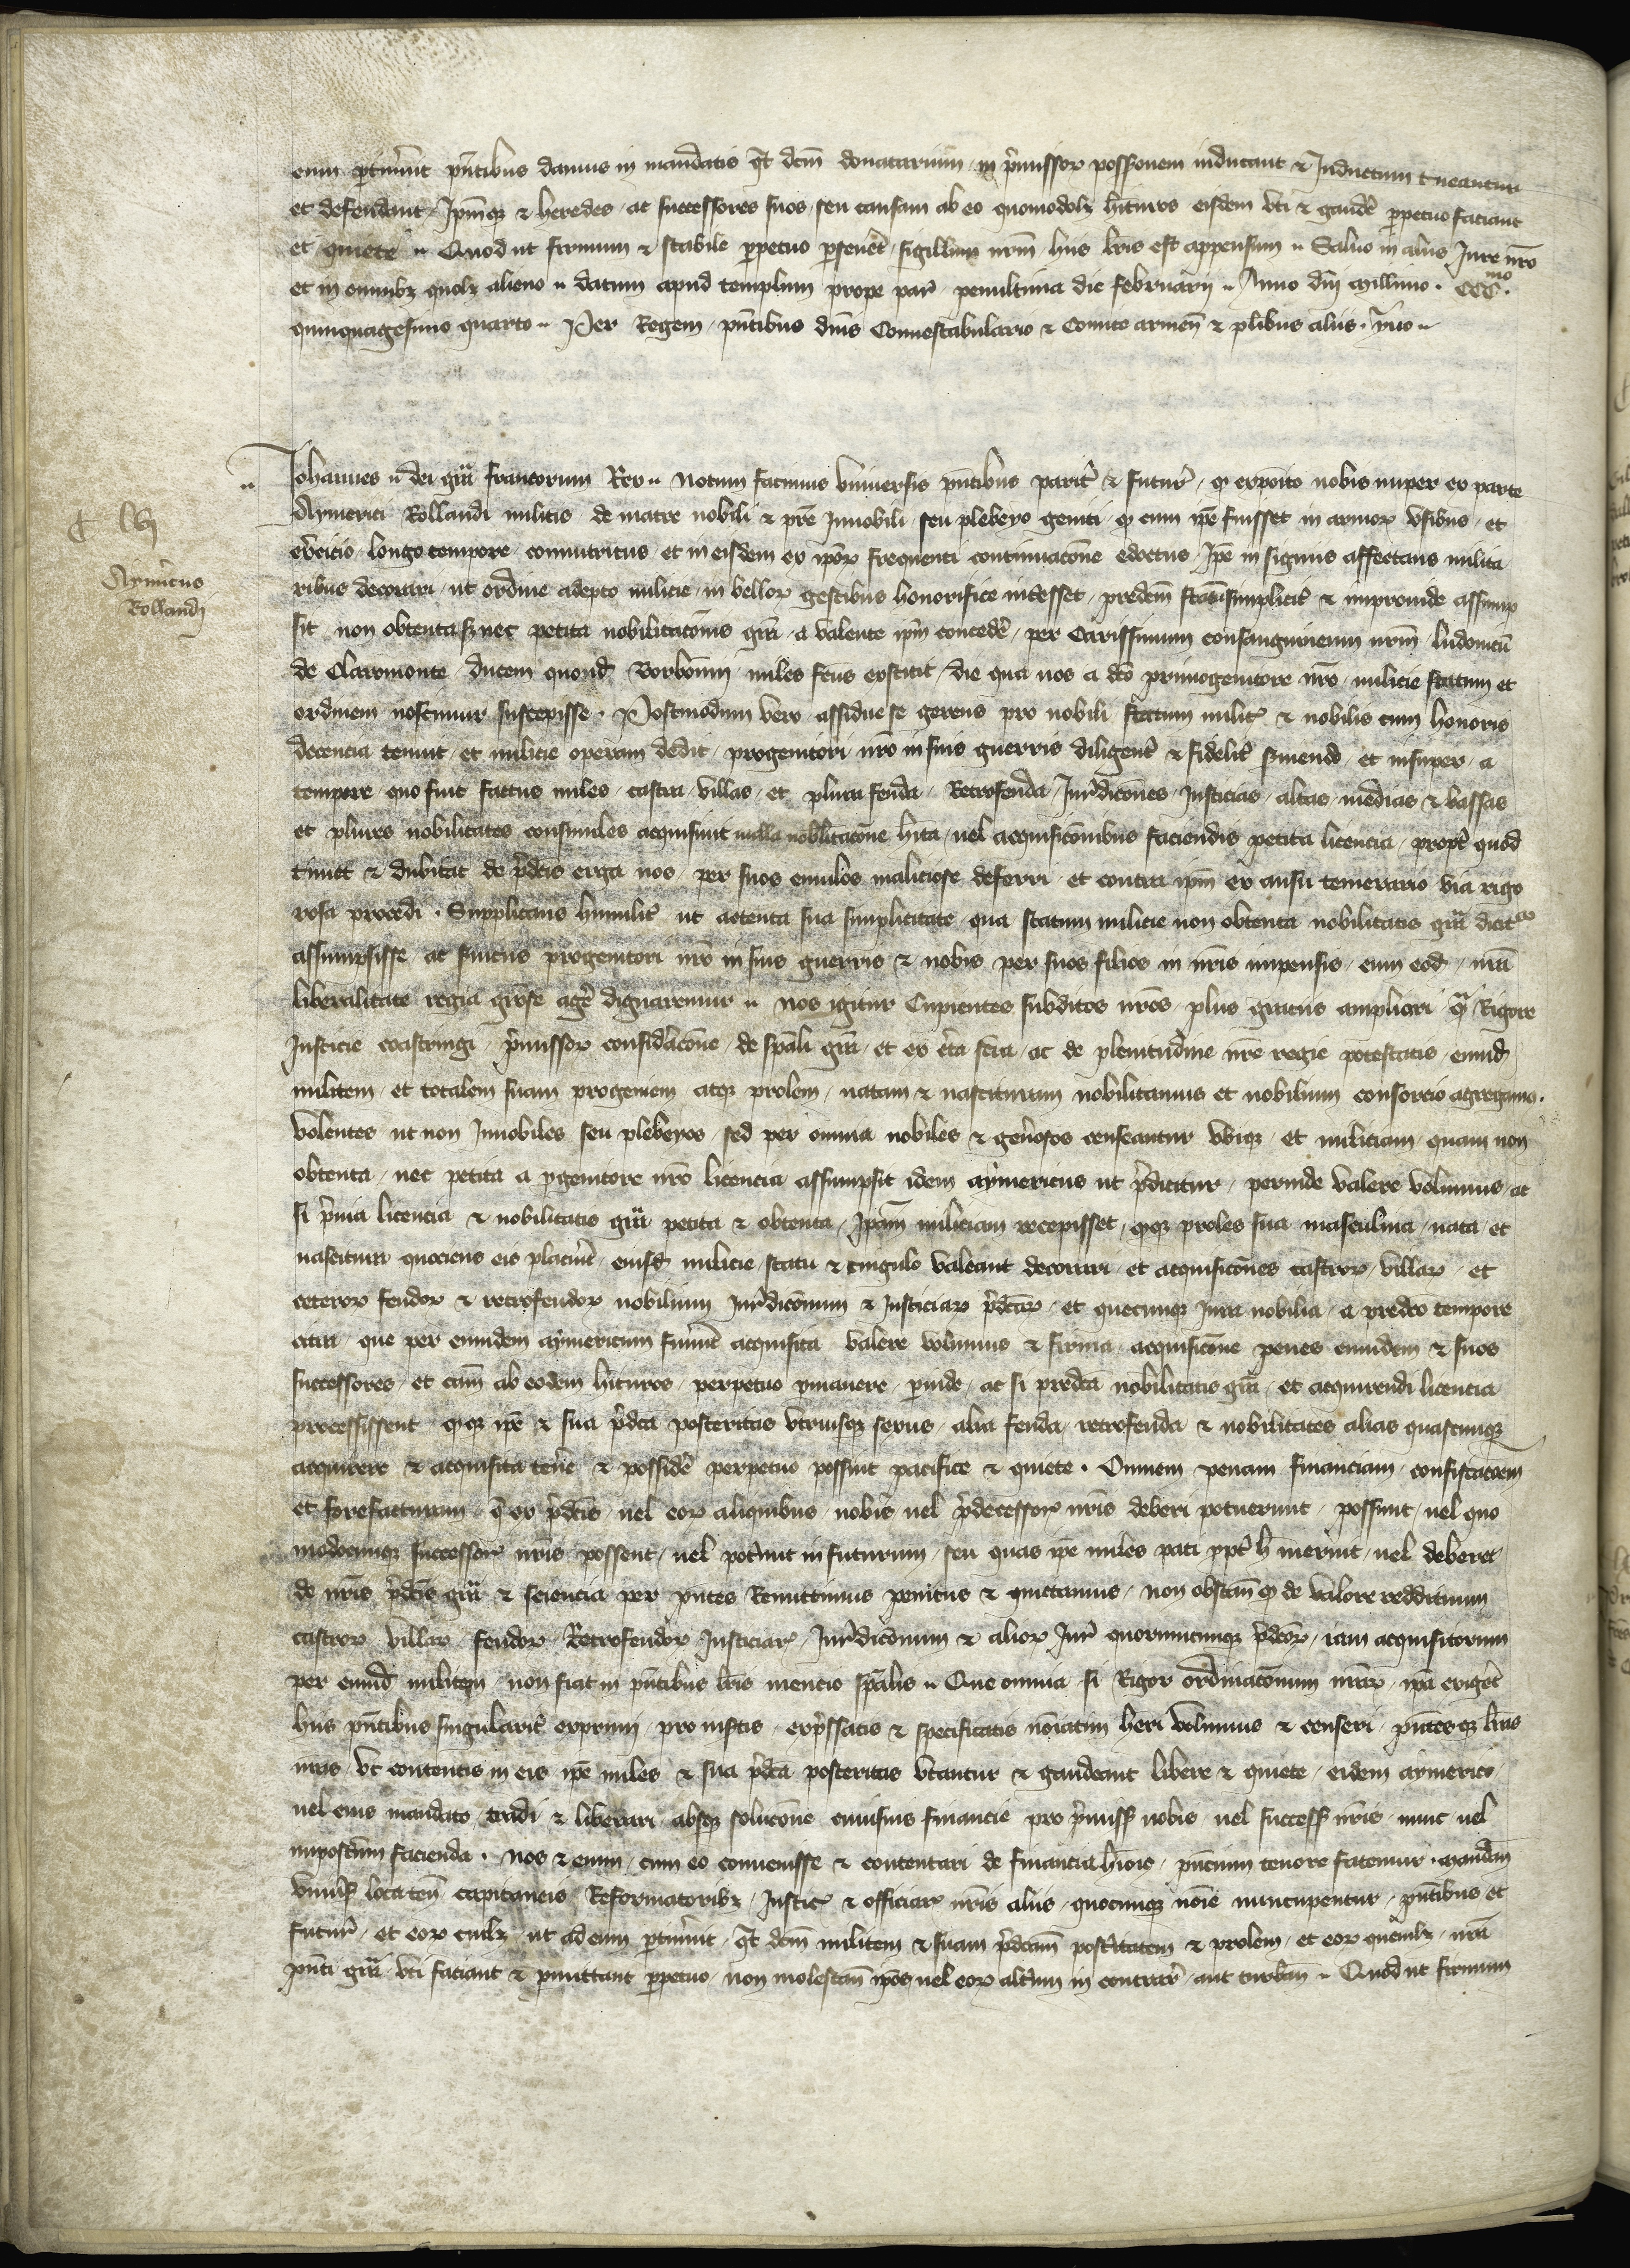 eum pertinuerit pñtibus damus in mandatis qt dcm donatarium in p̃missor possõnem inducant & Inductum tueantur
et defendant Ipmqz & heredes ac successores suos seu causam ab eo quomodolz hituros eisdem vti & gaudẽ perpetuo faciant
et quiete Quod ut firmum & stabile perpetuo perseuet sigillum nrm hiis lris est appensum Saluo in aliis Jure nro
et in omnibz quolz alieno datum apud templum prope par penultima die februarii Anno dni Millimo CCCmo
quinquagesimo quarto Per Regem pñtibus dnis Connestabulario & Comite armen & plibus aliis Yuo
C lvj
Aymicus
Rollandi
Iohannes dei gra francorum Rex Notum facimus vniuersis pñtibus parit & futur q exposito nobis nuper ex parte
Aymerici Rollandi militis de matre nobili & pre Innobili seu plebeyo geniti q cum ipe fuisset in armor vsibus et
exercicio longo tempore connutritus et in eisdem ex ipor frequenti continuacone edoctus Ipe insignius affectans milita
ribus decorari ut ordine adepto milicie in bellor gestibus honorifice interesset predcm statum simplicit & improuide assump
sit non obtenta nec petita nobilitaconis gra a valente ipm concedẽ per Carissimum consanguineum nrm ludouicu
de Claromonte ducem quond Borbonii miles fcus exstitit die qua nos a dco primogenitore nro milicie statum et
ordinem noscimur suscepisse Postmodum vero assidue se gerens pro nobili statum milit & nobilis cum honoris
decencia tenuit et milicie operam dedit progenitori nro in suis guerris diligent & fidelit seruiendo et insuper a
tempore quo fuit factus miles castra villas et plura feuda Retrofeuda Jurdicones Justicias altas medias & bassas
et plures nobilitates consimiles acquisiuit nulla nobilitacone hita uel acquisiconibus faciendis petita licencia propt quod
timet & dubitat de p̃dcis erga nos per suos emulos maliciose deferri et contra ipm ex ausu temerario via rigo
rosa procedi Supplicans humilit ut attenta sua simplicitate qua statum milicie non obtenta nobilitatis gra dicitur
assumpsisse ac seruiciis progenitori nro in suis guerris & nobis per suos filios in nris impensis cum eod nra
liberalitate regia grose agẽ dignaremur Nos igitur Cupientes subditos nros plus graciis ampliari q̃ Rigore
Justicie coastringi p̃missor consideracone de spali gra et ex certa scia ac de plenitudine nre regie potestatis eumd
militem et totalem suam progeniem atqz prolem natam & nascituram nobilitamus et nobilium consorcio agregamus
volentes ut non Innobiles seu plebeyos sed per omnia nobiles & generosos censeantur vbiqz et miliciam quam non
obtenta nec petita a pgenitore nro licencia assumpsit idem aymericus ut p̃dicitur perinde valere volumus ac
si p̃uia licencia & nobilitatis gra petita & obtenta Ipam miliciam recepisset qqz proles sua masculina nata et
nascitura quociens eis placuerit eiusd milicie statu & cingulo valeant decorari et acquisicones castror villar et
ceteror feudor & retrofeudor nobilium Jurdiconum & Justiciar p̃dcar et quecunqz Jura nobilia a predco tempore
citra que per eumdem aymericum fuerint acquisita valere volumus & firma acquisicone penes eumdem & suos
successores et cam ab eodem hituros perpetuo pmanere perinde ac si predca nobilitatis gra et acquirendi licencia
precessissent qqz ipe & sua p̃dca posteritas vtriusqz sexus alia feuda retrofeuda & nobilitates alias quascunqz
acquirere & acquisita tenẽ & possidẽ perpetuo possint pacifice & quiete Omnem penam financiam confiscacoem
et forefacturam q̃ ex p̃dcis uel eor aliquibus nobis uel p̃decessor nris deberi potuerunt possunt uel quo
modocunqz successor nris possent uel poterunt in futurum seu quas ipe miles pati ppt h meruit uel deberet
de nris p̃dcis gra & sciencia per pntes Remittimus penitus & quictamus non obstan q de valore reddituum
castror villar feudor Retrofeudor Justiciar Jurdiconum & alior Jur quorumcunqz p̃dcor iam acquisitorum
per eumd militem non fiat in pñtibus lris mencio spalis Que omnia si Rigor ordinaconum nrar ipa exiget
hiis pñtibus singularit exprimi pro insertis expssatis & specificatis noiatim heri volumus & censeri pntesqz lras
nras vt contentis in eis ipe miles & sua p̃dca posteritas vtantur & gaudeant libere & quiete eidem aymerico
uel eius mandato tradi & liberari absqz solucone cuiusuis financie pro p̃miss nobis uel success nris nunc uel
impostum facienda Nos & enim cum eo conuenisse & contentari de financia hmoi pncium tenore fatemur Mandam
vniuss locaten capitaneis Reformatoribz Justic & officiar nris aliis quocunqz noie nuncupentur pñtibus et
futur et eor cuilz ut ad eum ptinuerit qt dcm militem & suam p̃dcam posteritatem & prolem et eor quemlz nra
pnti gra vti faciant & pmittant perpetuo non molestan ipos uel eor alterum in contrar aut turban Quod ut firmum